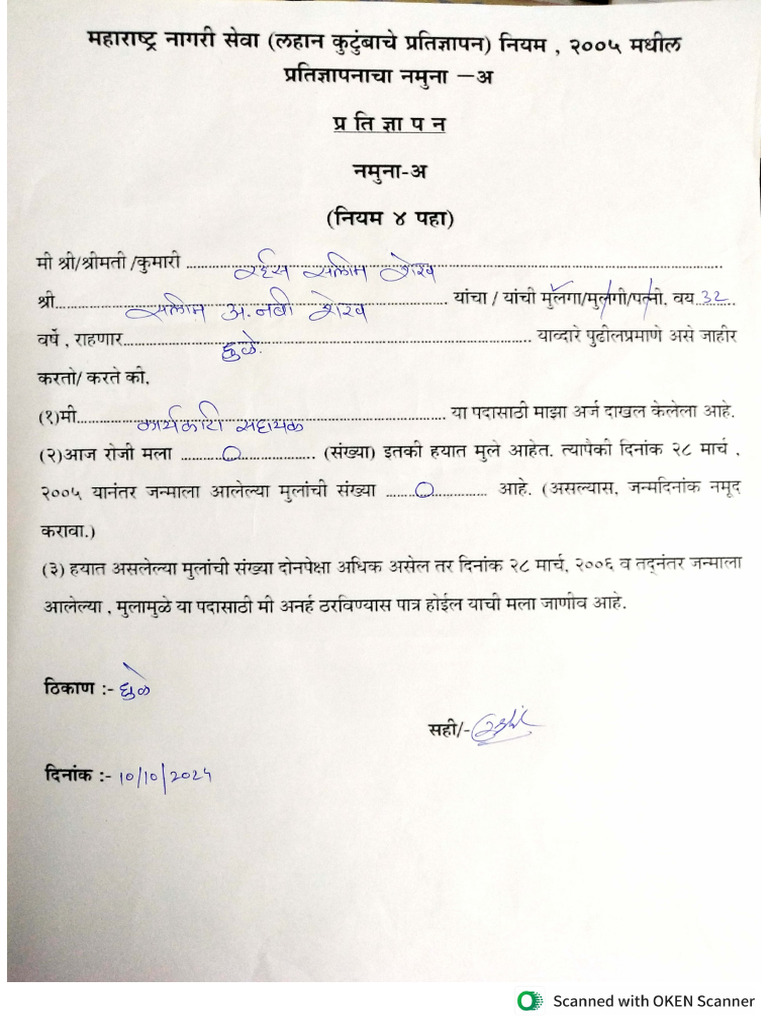 महाराष्ट्र नागरी सेवा (लहान कुटुंबाचे प्रतिज्ञापन) नियम , २००५ मधील
प्रतिज्ञापनाचा नमुना –अ
प्र ति ज्ञा प न
नमुना-अ
(नियम ४ पहा)
मी श्री/श्रीमती /कुमारी रईस सलीम शेख
श्री सलीम अ. नबी शेख यांचा / यांची मुलगा/मुलगी/पत्नी, वय 32
वर्षे , राहणार धुळे. याव्दारे पुढीलप्रमाणे असे जाहीर
करतो/ करते की,
(१)मी कार्यकारी सहायक या पदासाठी माझा अर्ज दाखल केलेला आहे.
(२)आज रोजी मला 0 (संख्या) इतकी हयात मुले आहेत. त्यापैकी दिनांक २८ मार्च ,
२००५ यानंतर जन्माला आलेल्या मुलांची संख्या 0 आहे. (असल्यास, जन्मदिनांक नमूद
करावा.)
(३) हयात असलेल्या मुलांची संख्या दोनपेक्षा अधिक असेल तर दिनांक २८ मार्च, २००६ व तद्नंतर जन्माला
आलेल्या , मुलामुळे या पदासाठी मी अनर्ह ठरविण्यास पात्र होईल याची मला जाणीव आहे.
ठिकाण :- धुळे
सही/-
दिनांक :- 10/10/2024
Scanned with OKEN Scanner